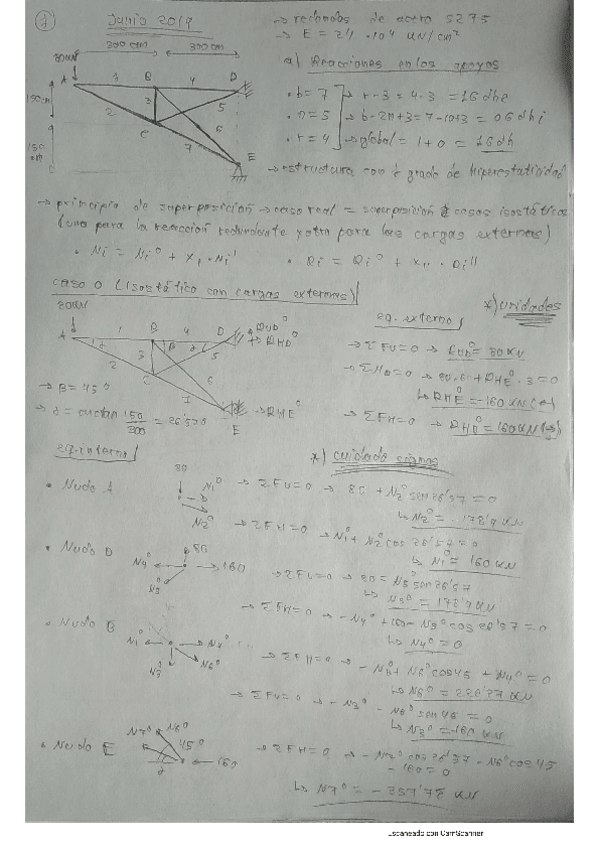 Junio 2019
→ redondos de acero S275
→ E = 2'1 · 10⁴ kN/cm²
300 cm
300 cm
80kN
A 3 B 4 D
3 5
C 6
7 E
a) Reacciones en los apoyos
· b = 7 → r-3 = 4-3 = 1G dhe
· n = 5 → b-2n+3 = 7-10+3 = 0G dhi
· r = 4 → global = 1+0 = 1G dh
→ estructura con 1 grado de hiperestaticidad
→ principio de superposición → caso real = superposición 2 casos isostáticos
(uno para la reacción redundante y otro para las cargas externas)
· Ni = Ni⁰ + X₁ · Ni'
caso 0 (isostático con cargas externas)
80kN
A 1 B 4 D RVD⁰
RHD⁰
2 3 5
C 6
7 E → RHE⁰
→ β = 45º
→ α = arctan 150/300 = 26'57º
*) unidades
eq. externo
→ ΣFV=0 → RVD⁰ = 80 kN
→ ΣMD=0 → 80·6 + RHE⁰ · 3 = 0
↳ RHE⁰ = -160 kN (←)
→ ΣFH=0 → RHD⁰ = 160 kN
eq. interno
*) cuidado signos
· Nudo A
80
N1⁰
N2⁰
→ ΣFV=0 → 80 + N2⁰ sen 26'57 = 0
↳ N2⁰ = -178'9 kN
→ ΣFH=0 → N1⁰ + N2⁰ cos 26'57 = 0
↳ N1⁰ = 160 kN
· Nudo D
80
N4⁰ 160
N5⁰
→ ΣFV=0 → 80 = N5⁰ sen 26'57
↳ N5⁰ = 178'9 kN
→ ΣFH=0 → -N4⁰ + 160 - N5⁰ cos 26'57 = 0
↳ N4⁰ = 0
· Nudo B
N1⁰ N4⁰
N3⁰ N6⁰
→ ΣFH=0 → -N1⁰ + N6⁰ cos 45 + N4⁰ = 0
↳ N6⁰ = 226'27 kN
→ ΣFV=0 → -N3⁰ - N6⁰ sen 45 = 0
↳ N3⁰ = -160 kN
· Nudo E
N7⁰ N6⁰
45º
160
→ ΣFH=0 → -N7⁰ cos 26'57 - N6⁰ cos 45
-160 = 0
↳ N7⁰ = -357'78 kN
Escaneado con CamScanner